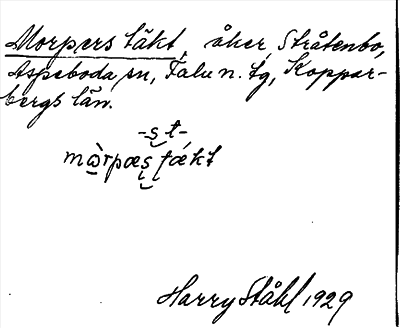 Morpers täkt, åker, Stråtenbo,
Aspeboda sn, Falu n. tg, Koppar-
bergs län.
-s̬ t-
mὼrpæs̬ tǽkt
Harry Ståhl 1929